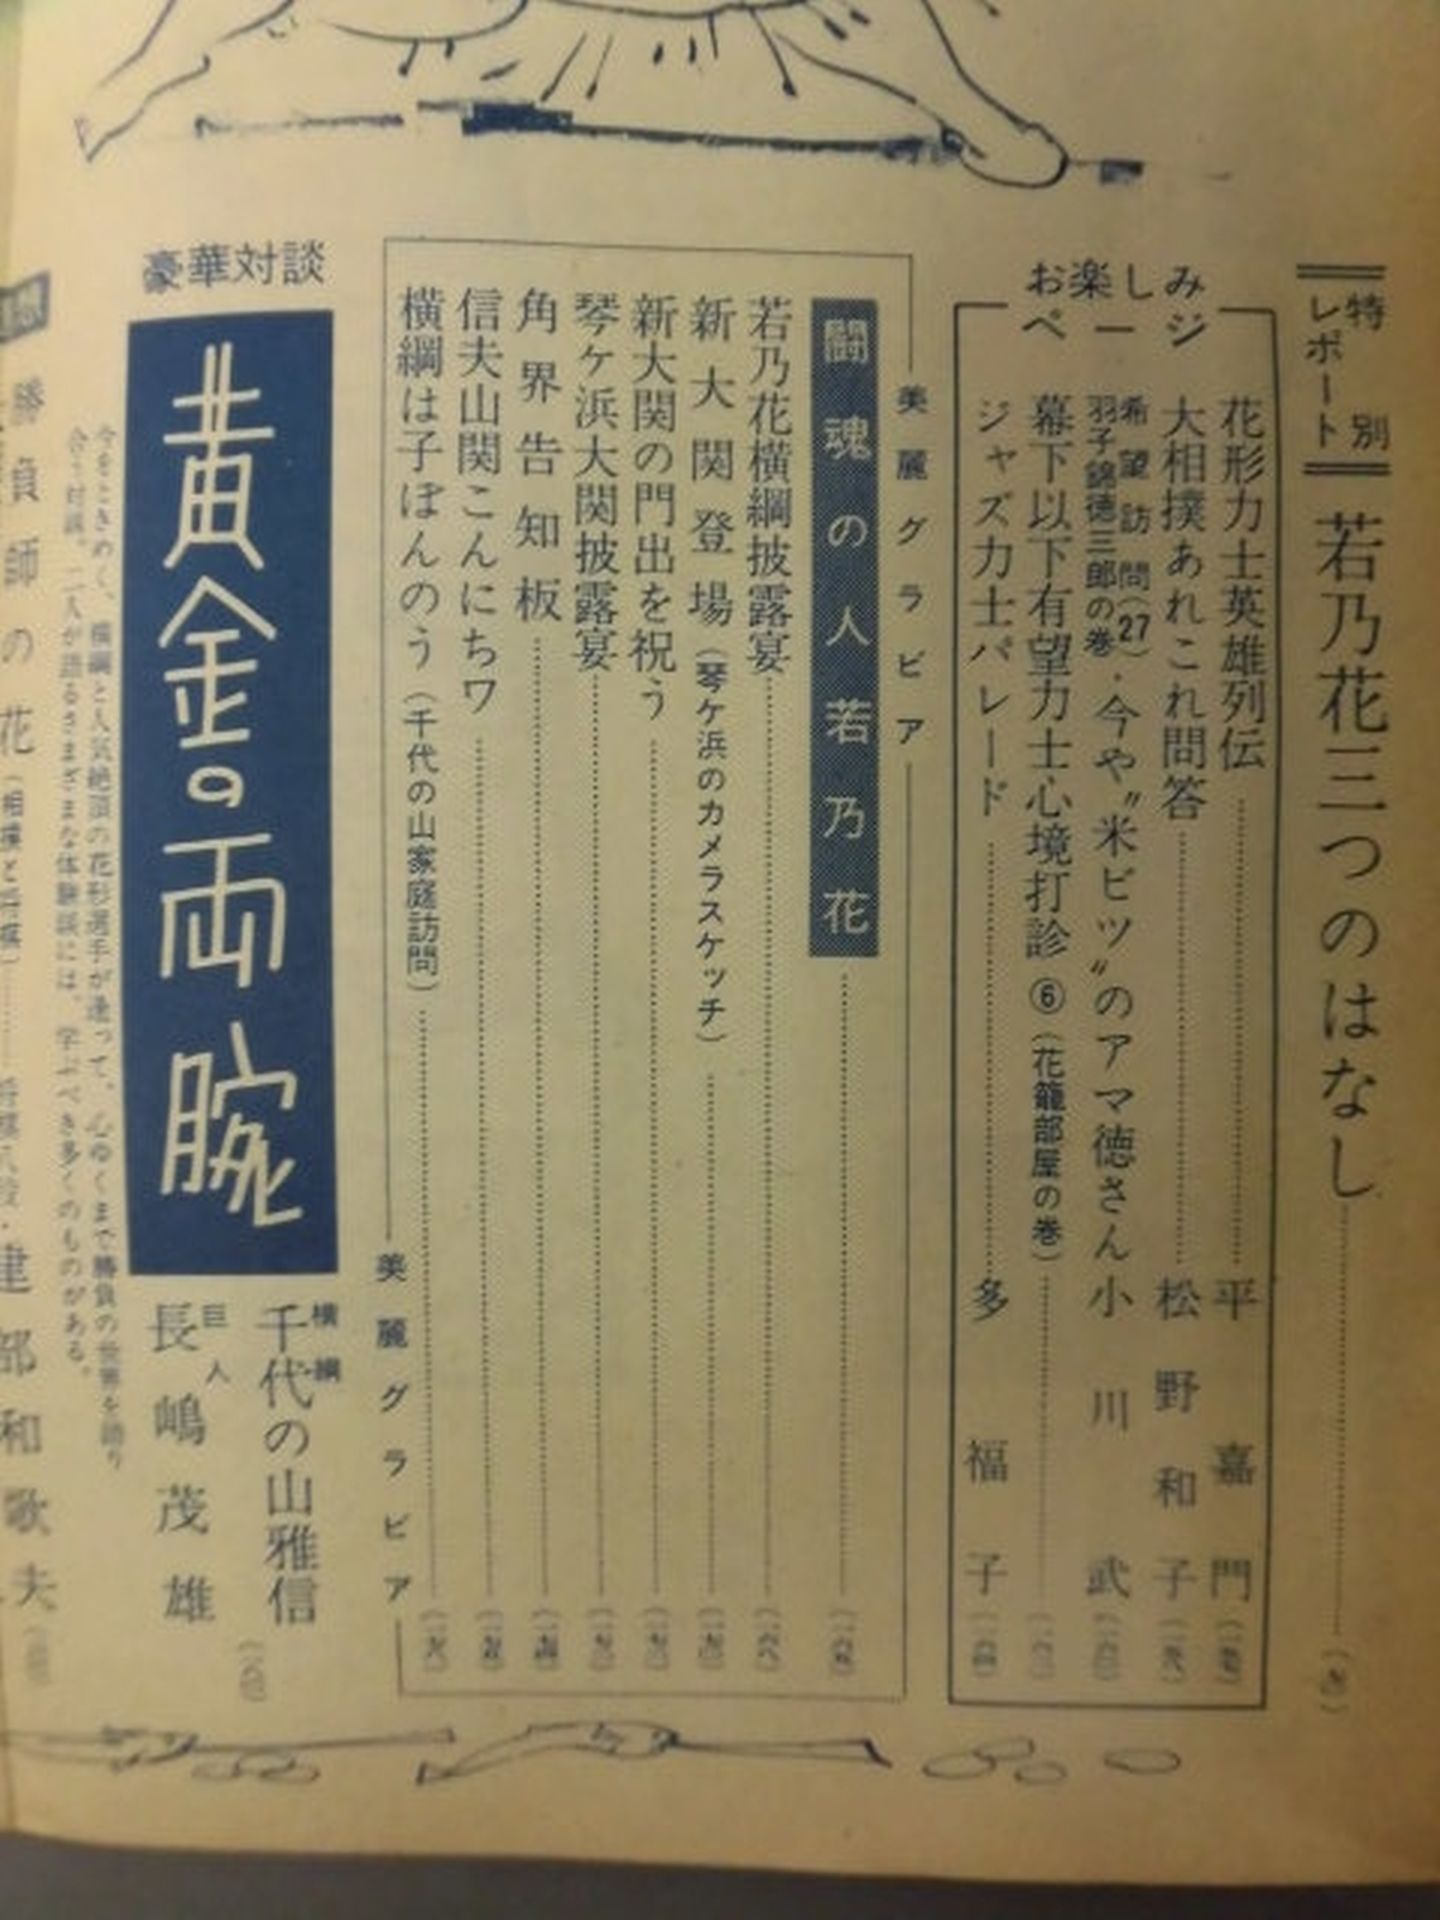 特別
レポート
若乃花三つのはなし
お楽しみ
ページ
花形力士英雄列伝
平嘉門
大相撲あれこれ問答
松野和子
希望訪問(27)
羽子錦徳三郎の巻
・今や〝米ビツ〟のアマ徳さん
小川武
幕下以下有望力士心境打診⑥(花籠部屋の巻)
ジャズ力士パレード
多福子
美麗グラビア
闘魂の人若乃花
若乃花横綱披露宴
新大関登場(琴ケ浜のカメラスケッチ)
新大関の門出を祝う
琴ケ浜大関披露宴
角界告知板
信夫山関こんにちワ
横綱は子ぼんのう(千代の山家庭訪問)
美麗グラビア
豪華対談
黄金の両腕
横綱
千代の山雅信
巨人
長嶋茂雄
今をときめく、横綱と人気絶頂の花形選手が逢って、心ゆくまで勝負の世界を語り
合う対談。二人が語るさまざまな体験談には、学ぶべき多くのものがある。
勝負師の花(相撲と将棋)
建部和歌夫